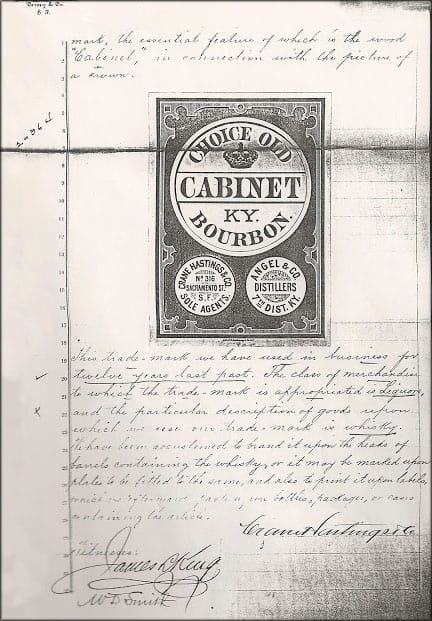 & Co.
mark, the essential feature of which is the word
"Cabinet," in connection with the picture of
a crown.
CHOICE OLD
CABINET
KY.
BOURBON.
CRANE HASTINGS & CO.
Nº 316
SACRAMENTO ST.
S.F.
SOLE AGENTS.
ANGEL & CO
DISTILLERS
7TH DIST. KY.
This trade-mark we have used in business for
twelve years last past. The class of merchandise
to which the trade-mark is appropriated is Liquors,
and the particular description of goods upon
which we use our trade-mark is whisky.
We have been accustomed to brand it upon the heads of
barrels containing the whisky, or it may be marked upon
plates to be fitted to the same, and also to print it upon labels,
upon bottles, packages, or cases
containing the article.
Crane Hastings & Co
Witnesses:
James L. King
W D Smith